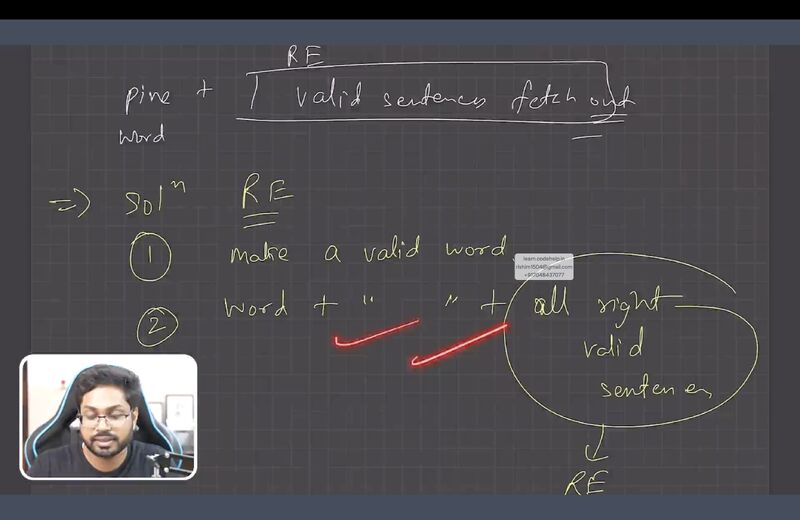 RE
pine + | valid sentences fetch out
word
=> solⁿ RE
① make a valid word
learn.codehelp.in
rishim1504@gmail.com
+912048437077
② word + " " + all right
valid
sentences
RE